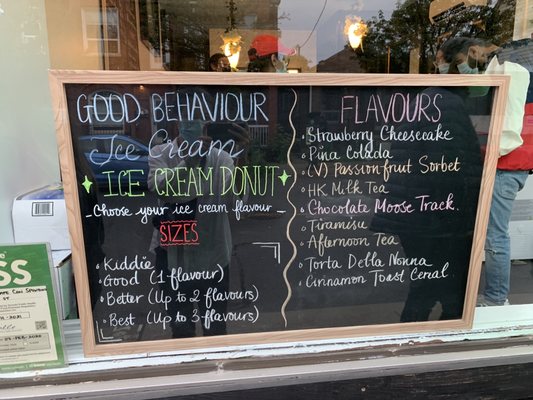 GOOD BEHAVIOUR
Ice Cream
ICE CREAM DONUT
- Choose your ice cream flavour -
SIZES
Kiddie
Good (1 flavour)
Better (Up to 2 flavours)
Best (Up to 3 flavours)
FLAVOURS
Strawberry Cheesecake
Pina Colada
(V) Passionfruit Sorbet
HK Milk Tea
Chocolate Moose Track.
Tiramisu
Afternoon Tea
Torta Della Nonna
Cinnamon Toast Ceral
SS